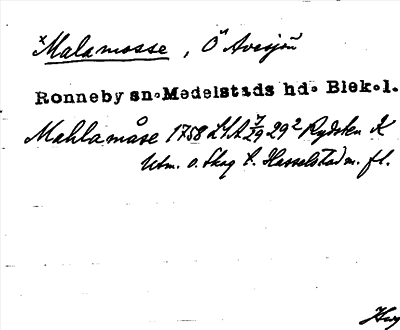 ×Malamosse, Ö Avesjön
Ronneby sn. Medelstads hd. Blek.l.
Mahlamåse 1758 LSA 7/29 29² Rydsken K
Utm. o. Skog t. Hasselstad m. fl.